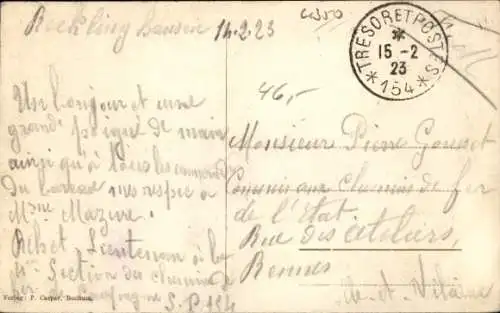 Recklinghausen 14.2.23
TRESOR ET POSTES
15-2
23
154
46,-
Un bonjour et une
grande poignée de main
ainsi qu'à tous les camarades
du bureau mes respects à
Mme Mazure.
Rehet Lieutenant à la
4e Section du chemin de
fer de campagne S.P. 154
Monsieur Pierre Gousset
Commis aux Chemins de fer
de l'Etat
Rue des Ateliers,
Rennes
Ille-et-Vilaine
Verlag: F. Carper, Bochum.